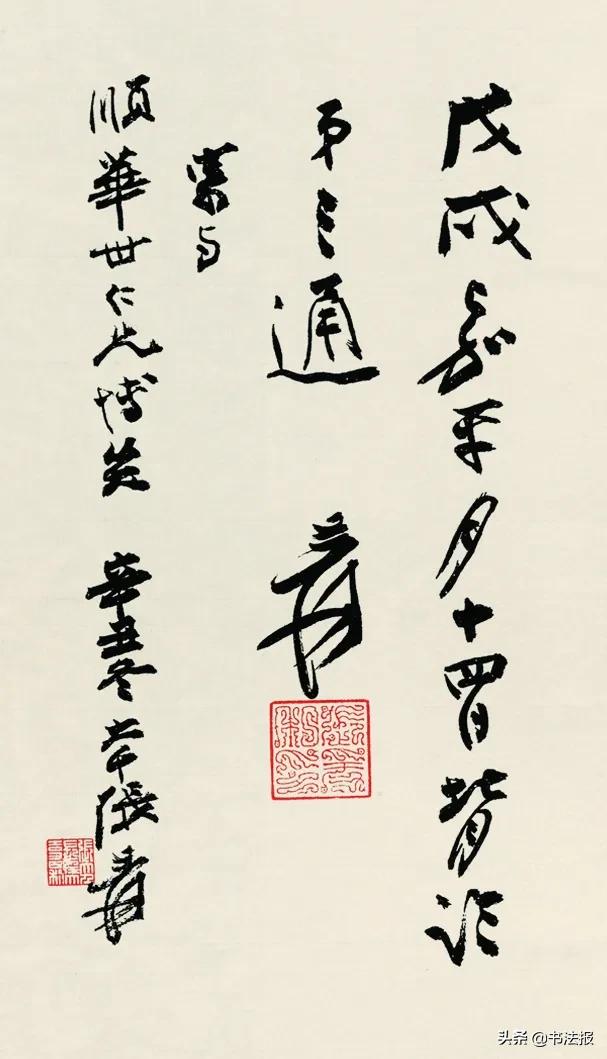 戊戌嘉平月十四日背臨
弟三通 爰
与
順華世仁兄博笑 辛丑冬 大千張爰
头条 @书法报